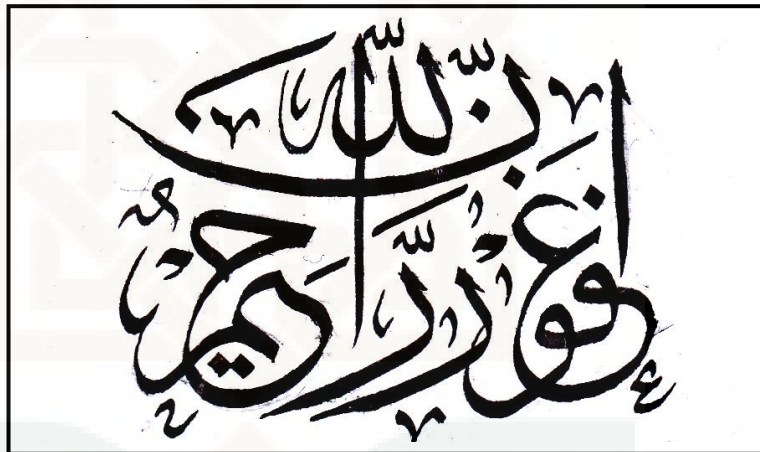 إِنَّ اللَّهَ غَفُورٌ رَّحِيمٌ